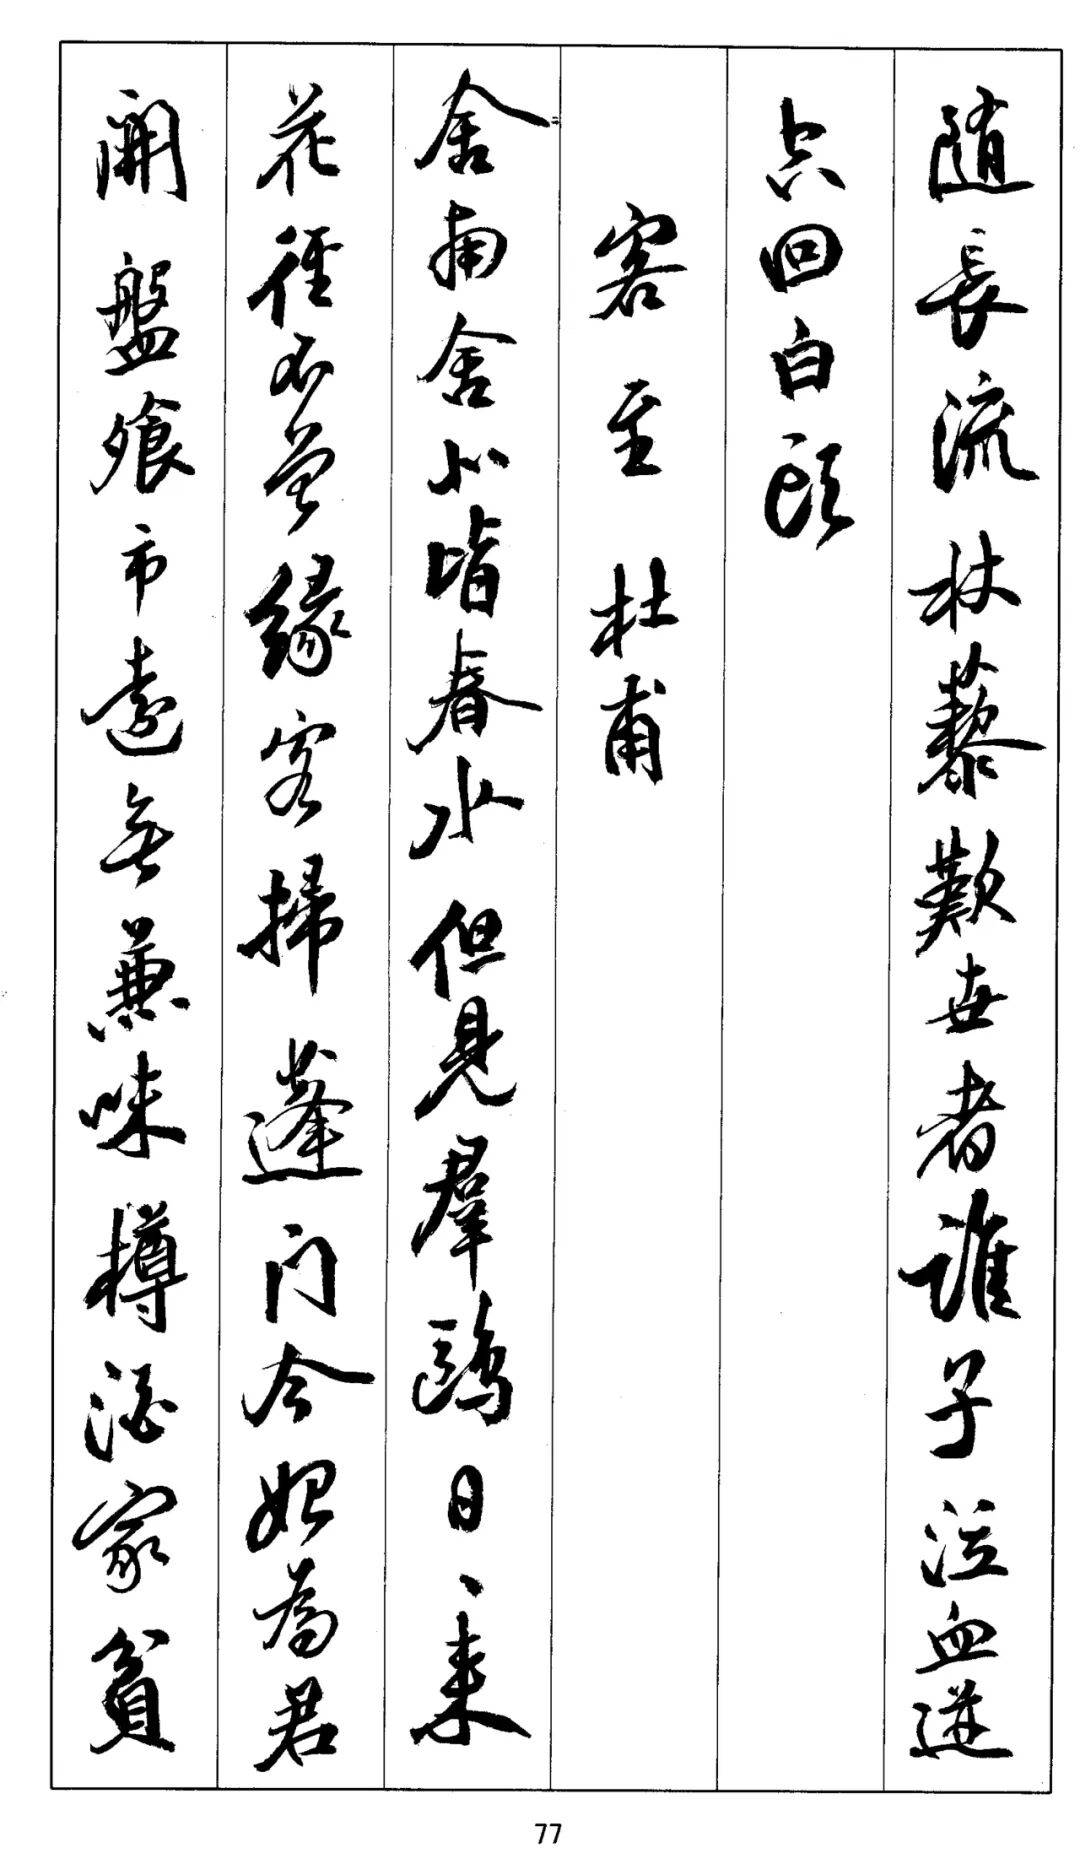 随長流杖藜歎世者誰子泣血迸
空回白頭
客至 杜甫
舍南舍北皆春水但見羣鷗日々来
花徑不曾緣客掃蓬门今始為君
開盤飱市遠無兼味樽酒家貧
77